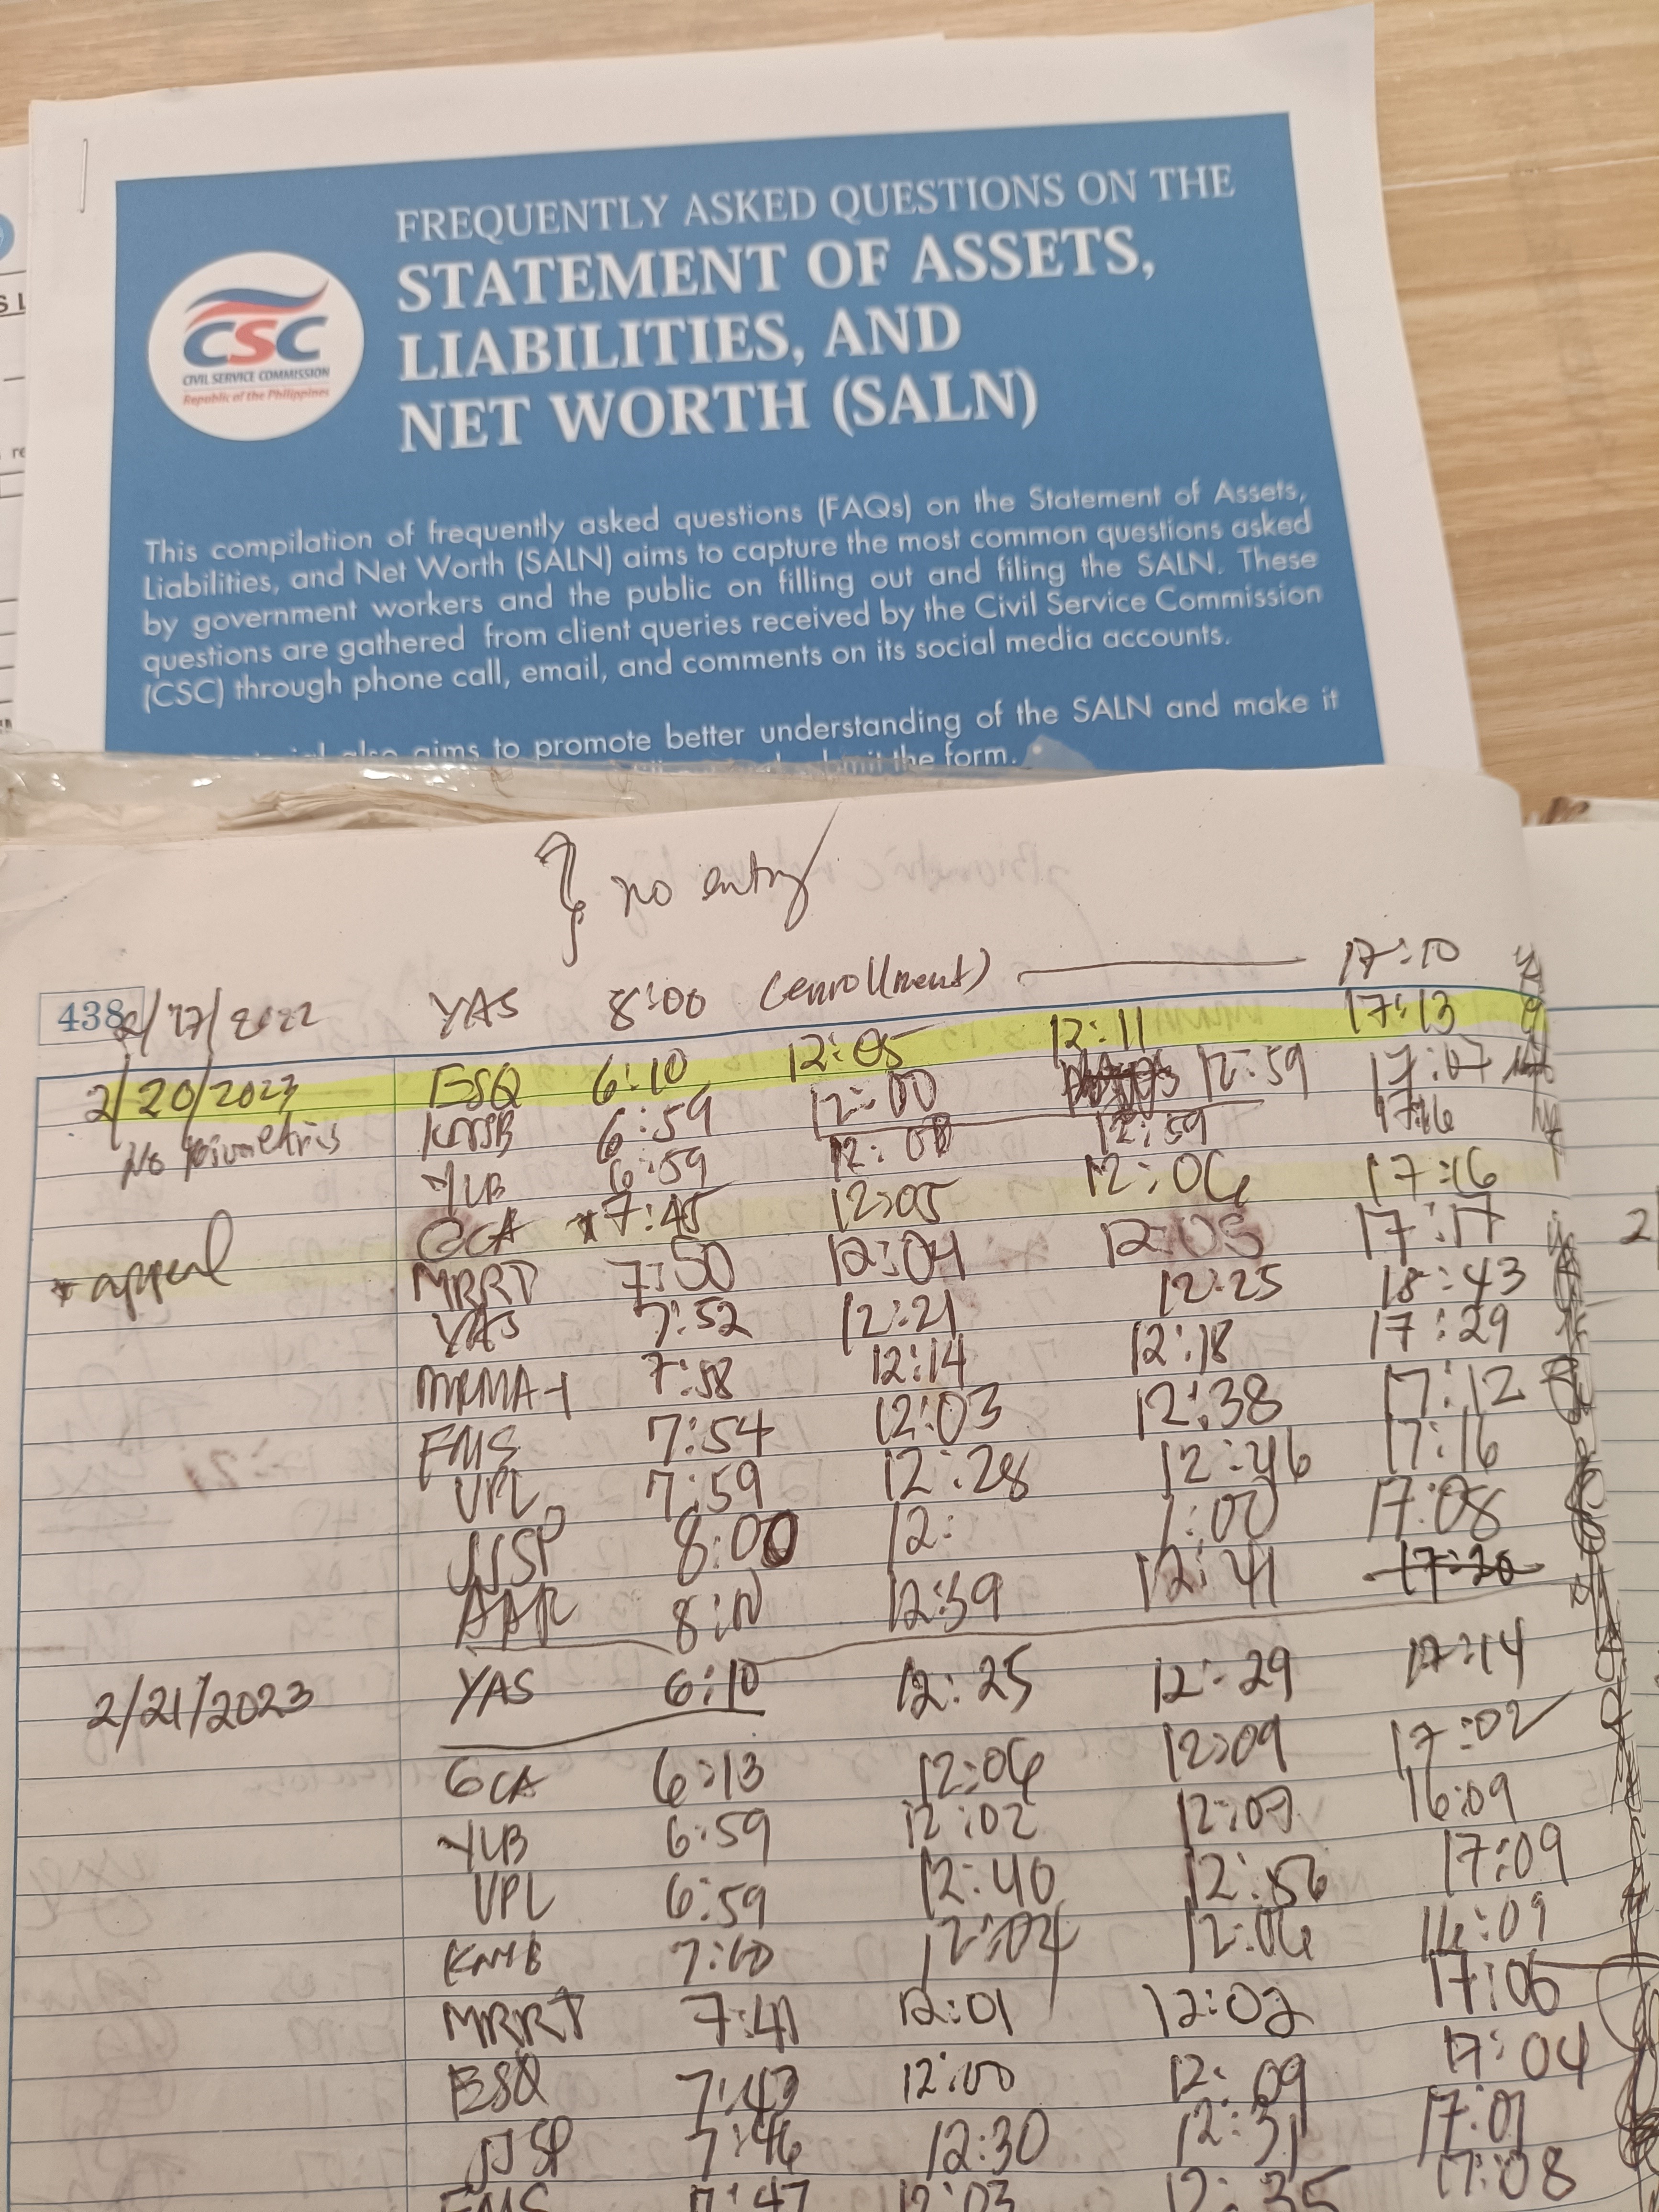 FREQUENTLY ASKED QUESTIONS ON THE
STATEMENT OF ASSETS,
LIABILITIES, AND
NET WORTH (SALN)
CSC
CIVIL SERVICE COMMISSION
Republic of the Philippines
This compilation of frequently asked questions (FAQs) on the Statement of Assets,
Liabilities, and Net Worth (SALN) aims to capture the most common questions asked
by government workers and the public on filling out and filing the SALN. These
questions are gathered from client queries received by the Civil Service Commission
(CSC) through phone call, email, and comments on its social media accounts.
also aims to promote better understanding of the SALN and make it
the form.
no entry
438
YAS 8:00 (enrollment) 17:10
2/20/2023 ESQ 6:10 12:05 12:11 17:13
6:59 12:00 12:59 17:07
No YLB 6:59 12:59
GCA *7:45 12:05 12:06 17:16
* appeal MRRT 7:50 12:04 12:05 17:17
YAS 7:52 12:21 12:25 18:43
7:58 12:14 12:18 17:29
FMS 7:54 12:03 12:38 17:12
VPL 7:59 12:28 12:46 17:16
JJSP 8:00 12: 1:00 17:08
AAR 12:39 12:41 17:20
2/21/2023 YAS 6:10 12:25 12:29 17:14
GCA 6:13 12:06 12:09 17:02
YLB 6:59 12:02 16:09
VPL 6:59 12:40 12:56 17:09
12:04 12:06 16:09
MRRT 7:41 12:01 12:02 17:06
ESQ 7:43 12:00 12:09 17:04
JJSP 7:46 12:30 12:31 17:01
FMS 7:47 12:03 12:35 17:08